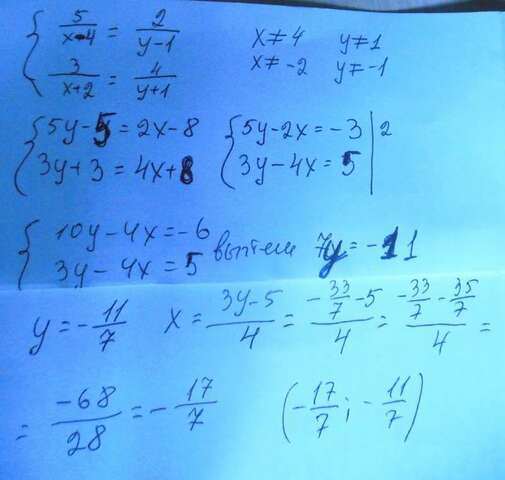 5/(x-4) = 2/(y-1)   x≠4   y≠1
3/(x+2) = 4/(y+1)   x≠-2   y≠-1
{5y-5=2x-8   {5y-2x=-3 | 2
3y+3=4x+8   3y-4x=5
{10y-4x=-6
3y-4x=5   вычтем   7y=-11
y=-11/7   x = (3y-5)/4 = (-33/7-5)/4 = (-33/7-35/7)/4 =
= -68/28 = -17/7   (-17/7; -11/7)